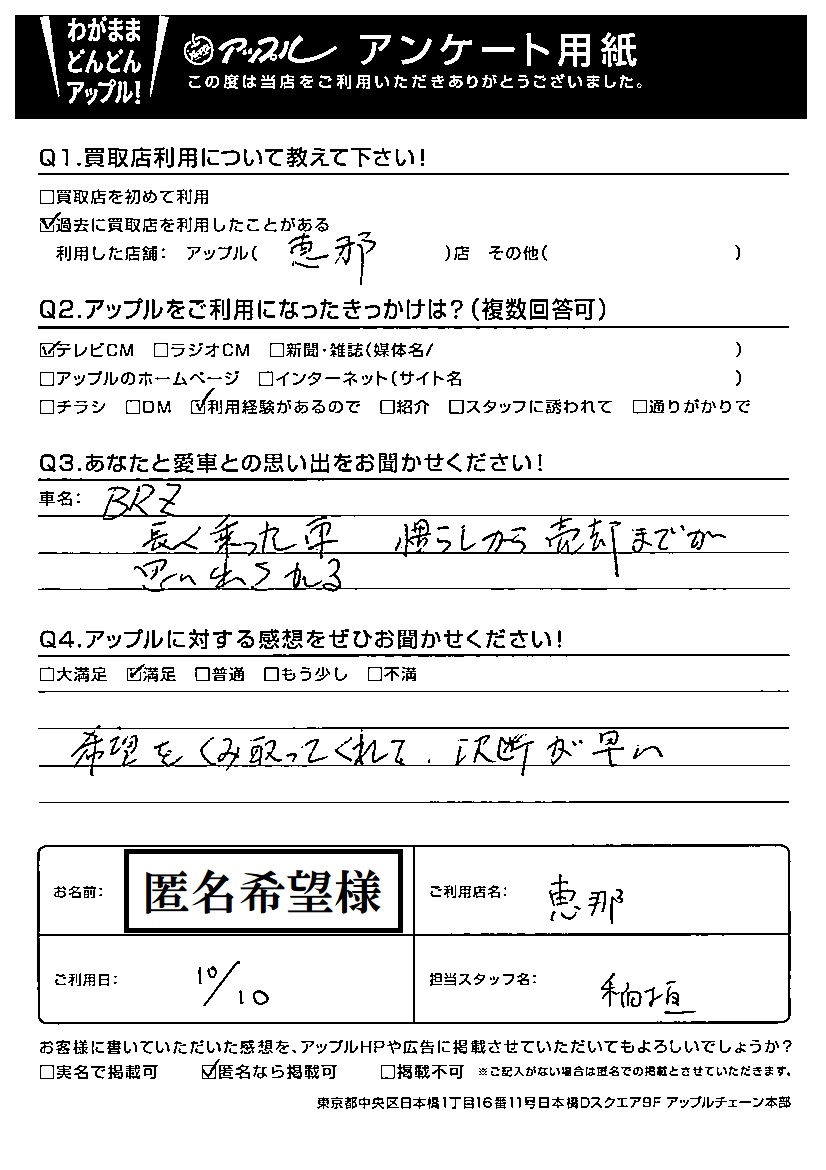 わがまま
どんどん
アップル!
アップル アンケート用紙
この度は当店をご利用いただきありがとうございました。
Q1.買取店利用について教えて下さい!
□買取店を初めて利用
☑過去に買取店を利用したことがある
利用した店舗: アップル( 恵那 )店 その他( )
Q2.アップルをご利用になったきっかけは?(複数回答可)
☑テレビCM □ラジオCM □新聞・雑誌(媒体名/ )
□アップルのホームページ □インターネット(サイト名 )
□チラシ □DM ☑利用経験があるので □紹介 □スタッフに誘われて □通りがかりで
Q3.あなたと愛車との思い出をお聞かせください!
車名: BRZ
長く乗った車 慣らしから売却までが
思い出される
Q4.アップルに対する感想をぜひお聞かせください!
□大満足 ☑満足 □普通 □もう少し □不満
希望をくみ取ってくれて、決断が早い
お名前: 匿名希望様 ご利用店名: 恵那
ご利用日: 10/10 担当スタッフ名: 稲垣
お客様に書いていただいた感想を、アップルHPや広告に掲載させていただいてもよろしいでしょうか?
□実名で掲載可 ☑匿名なら掲載可 □掲載不可 ※ご記入がない場合は匿名での掲載とさせていただきます。
東京都中央区日本橋1丁目16番11号日本橋Dスクエア9F アップルチェーン本部